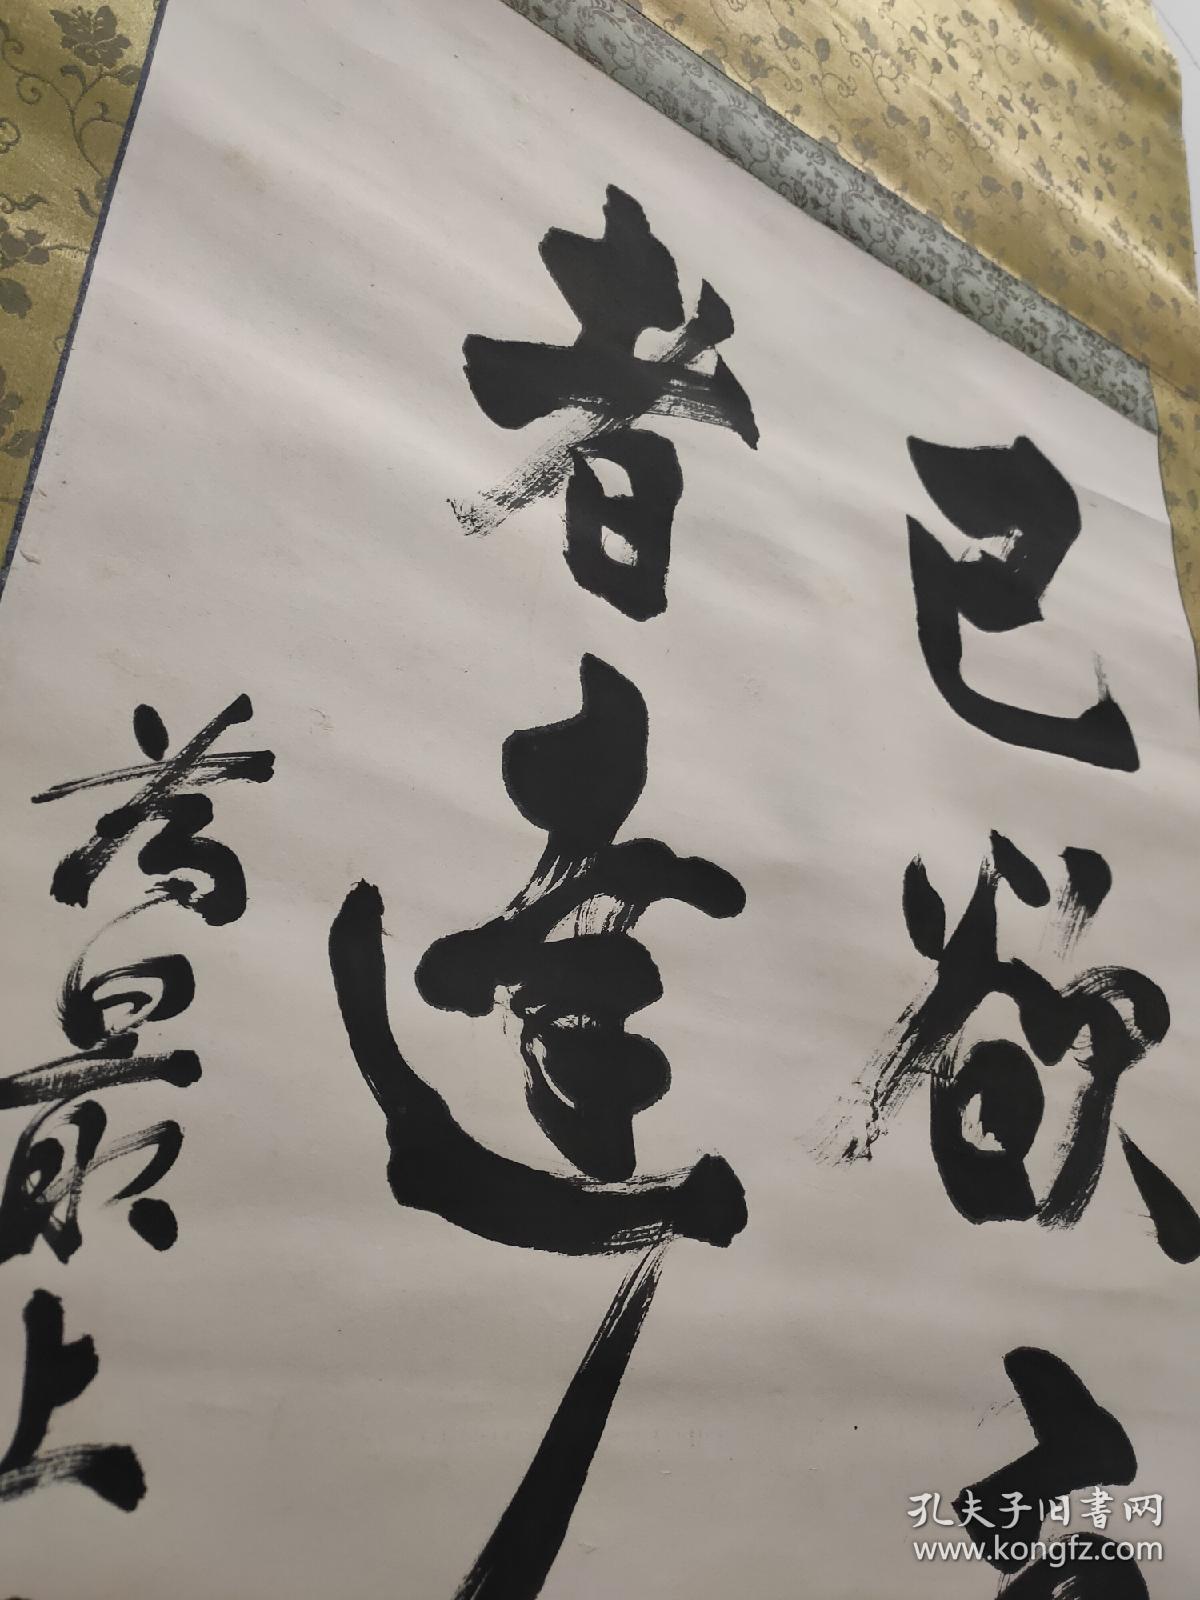 己欲
者達
為最上
孔夫子旧書网
www.kongfz.com